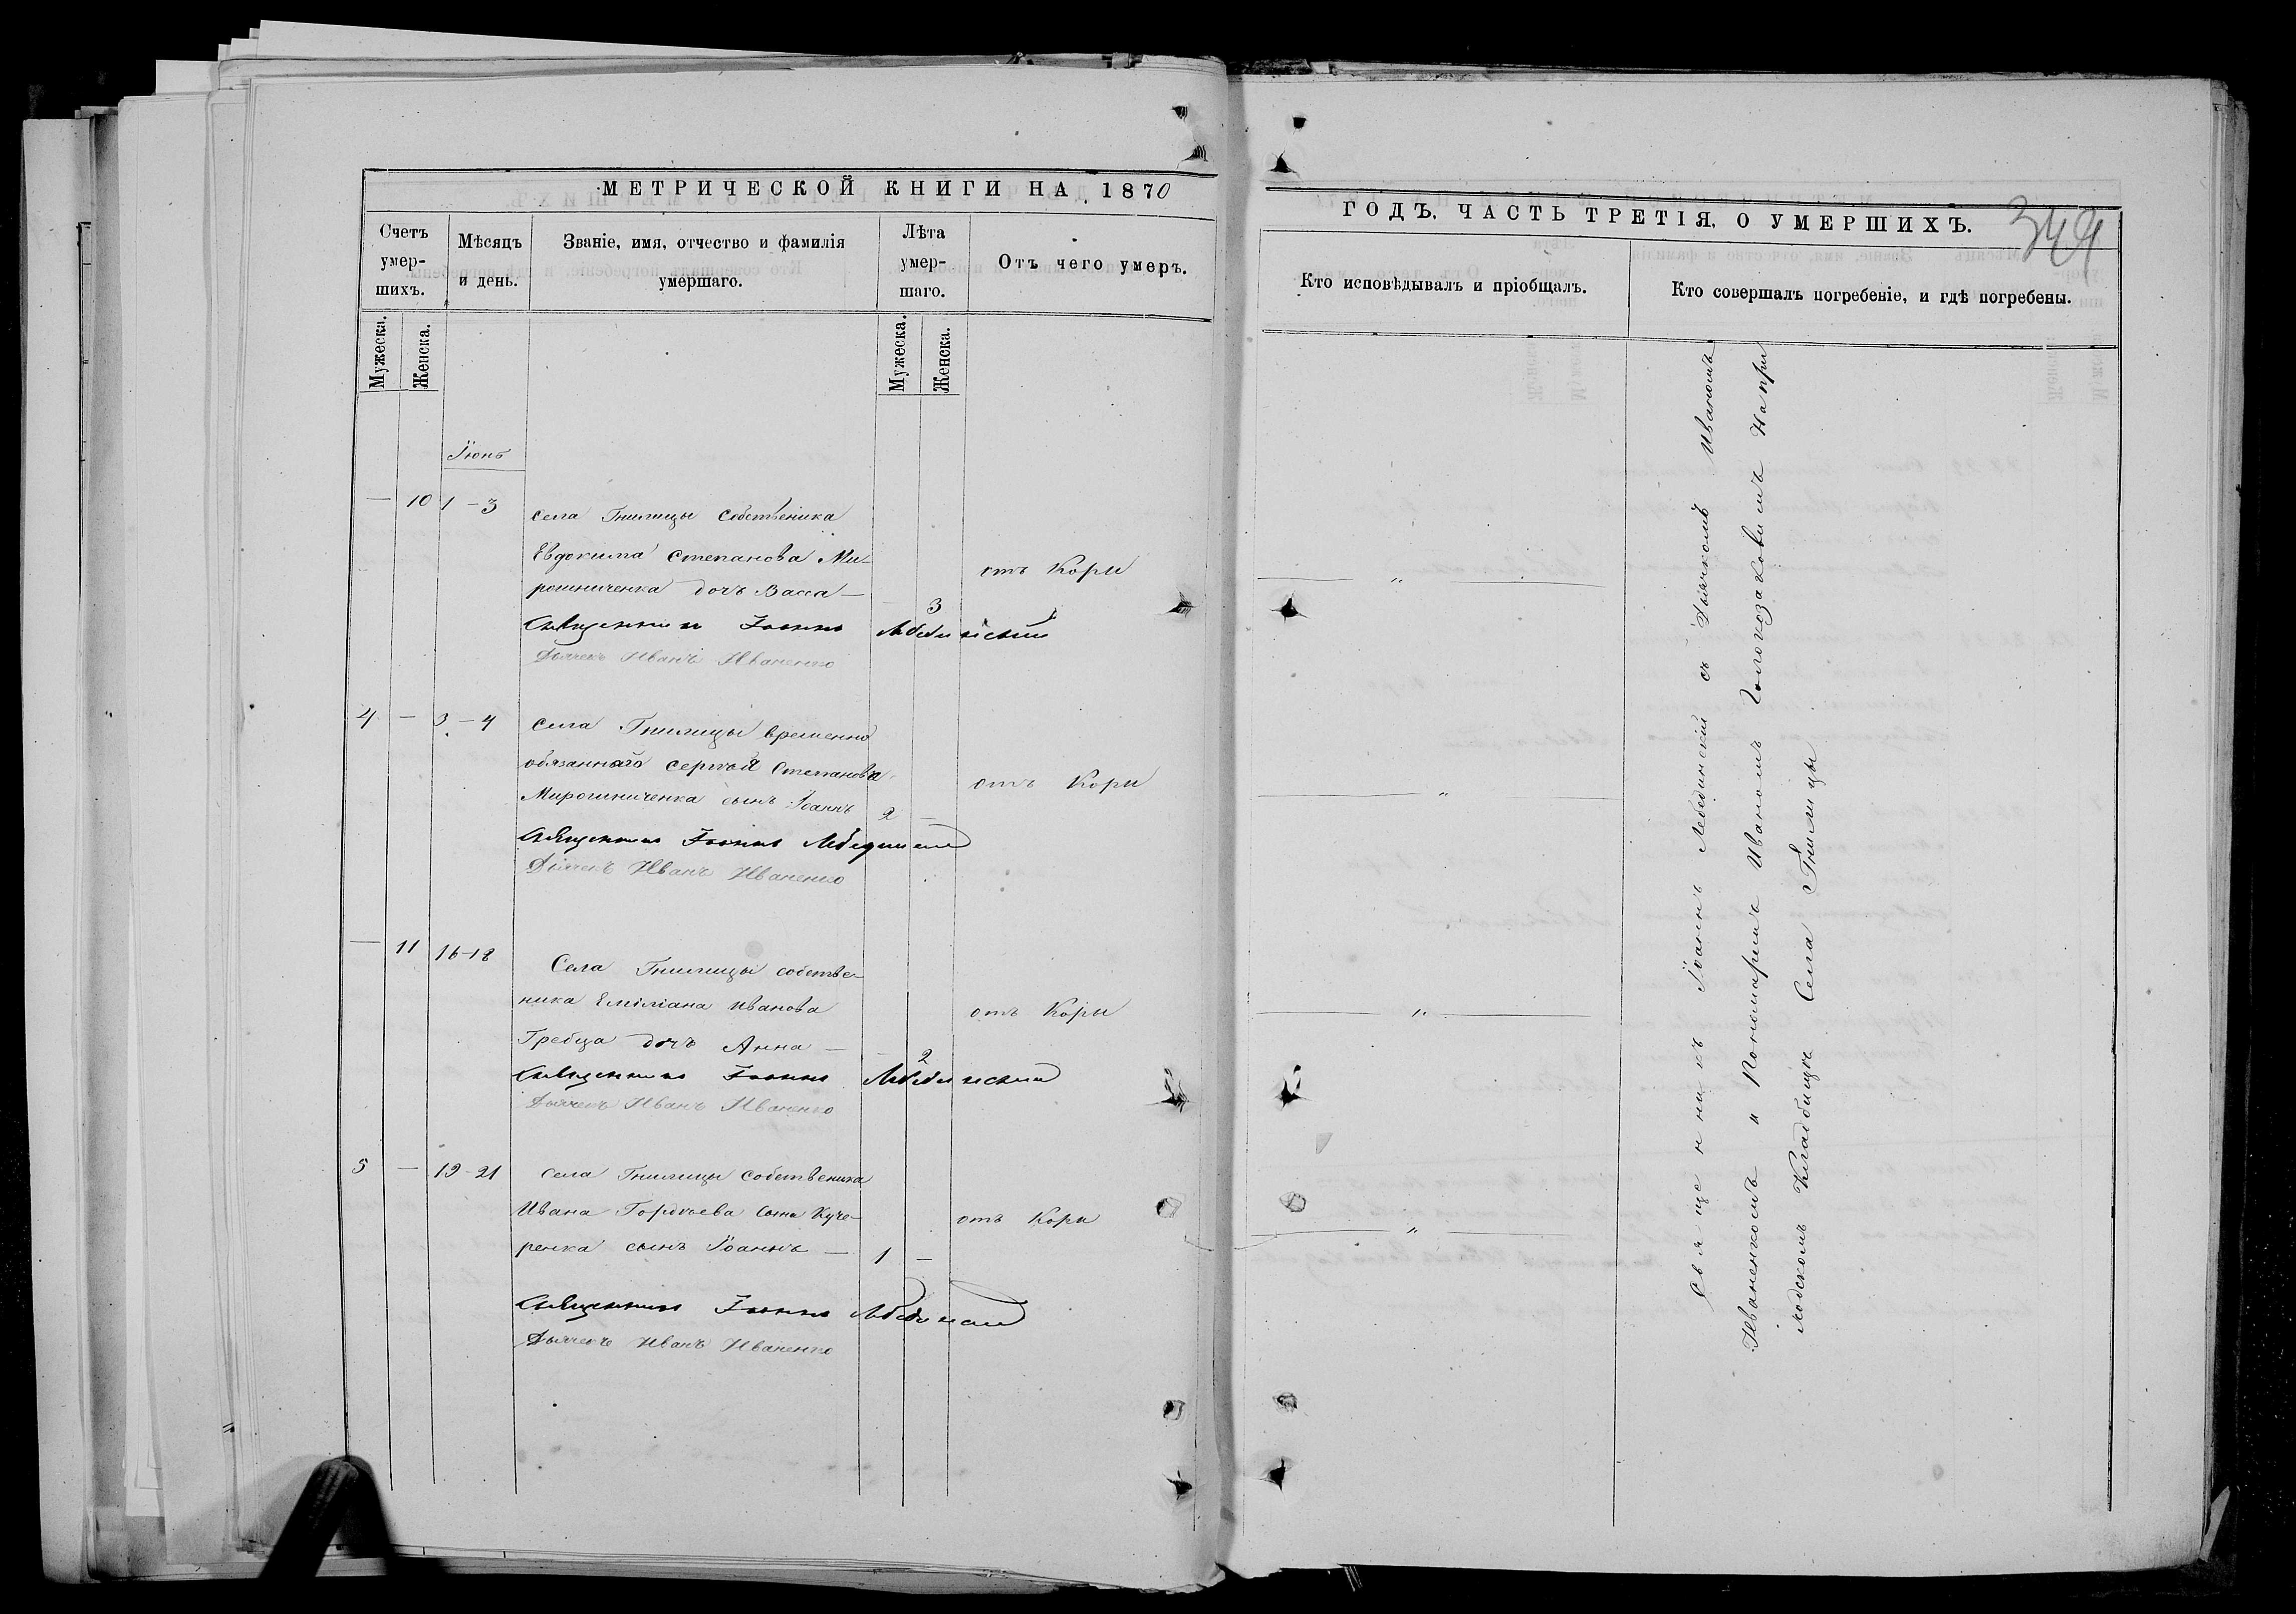 МЕТРИЧЕСКОЙ КНИГИ НА 1870
Счетъ умер-шихъ.
Мѣсяцъ и день.
Званіе, имя, отчество и фамилія умершаго.
Лѣта умер-шаго.
Отъ чего умеръ.
Мужеска. Женска.
Мужеска. Женска.
Іюнь
— 10 1–3
села Гнилицы собственика
Евдокима Степанова Ми-
рошниченка дочь Васса — 3
отъ Кори
Священникъ Іоаннъ Лебединскій
Дьячекъ Иванъ Иваненко
4 — 3–4
села Гнилицы временно
обязаннаго Сергѣя Степанова
Мирошниченка сынъ Іоаннъ 2 —
отъ Кори
Священникъ Іоаннъ Лебединскій
Дьячекъ Иванъ Иваненко
— 11 16–18
Села Гнилицы собстве-
ника Емиліана Иванова
Гребца дочь Анна — 2
отъ Кори
Священникъ Іоаннъ Лебединскій
Дьячекъ Иванъ Иваненко
5 — 19–21
села Гнилицы собственика
Ивана Гордѣева сына Куче-
ренка сынъ Іоаннъ — 1 —
отъ Кори
Священникъ Іоаннъ Лебединскій
Дьячекъ Иванъ Иваненко
ГОДЪ. ЧАСТЬ ТРЕТІЯ, О УМЕРШИХЪ.
344
Кто исповѣдывалъ и пріобщалъ.
Кто совершалъ погребеніе, и гдѣ погребены.
— „ —
— „ —
— „ —
— „ —
Священникъ Іоаннъ Лебединскій съ Дьячкомъ Иваномъ
Иваненкомъ и Пономаремъ Иваномъ Голоказаковимъ На при
людскомъ Кладбищѣ Села Гнилицы